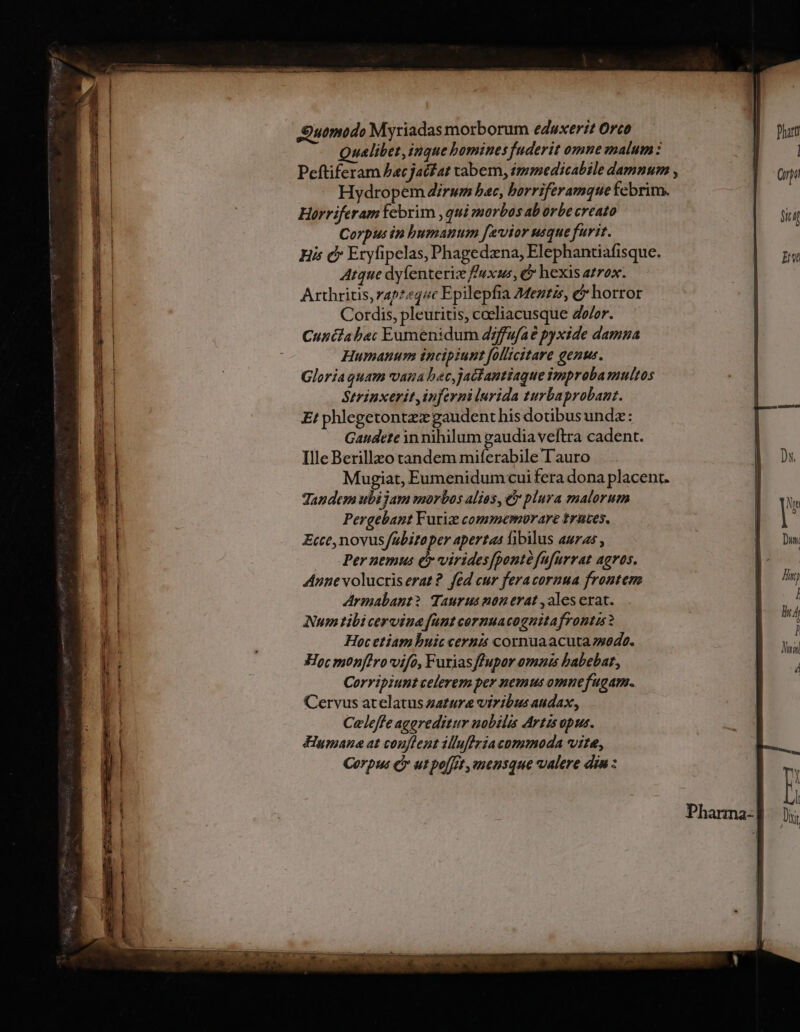 Quomodo Myriadas morborum eduxerit Orco
Qualibet, inque homines fuderit omne malum:
Peſtiferam hæc jactat tabem, immedicabile damnum,
Hydropem dirum hæc, horriferamque febrim.
Horriferam febrim, qui morbos ab orbe creato
Corpus in humanum ſævior usque furit.
His & Eryſipelas, Phagedæna, Elephantiaſisque.
Atque dyſenteriæ fluxus, & hexis atrox.
Arthritis, raptæque Epilepſia Mentis, & horror
Cordis, pleuritis, cœliacusque dolor.
Cuncta hæc Eumenidum diffuſa è pyxide damna
Humanum incipiunt ſollicitare genus.
Gloria quam vana hæc, jactantiaque improba multos
Strinxerit, inferni lurida turba probant.
Et phlegetontææ gaudent his dotibus undæ:
Gaudete in nihilum gaudia veſtra cadent.
Ille Berillæo tandem miſerabile Tauro
Mugiat, Eumenidum cui fera dona placent.
Tandem ubi jam morbos alios, & plura malorum
Pergebant Furiæ commemorare truces.
Ecce, novus ſubitoper apertas ſibilus auras,
Per nemus & virides ſpontè ſuſurrat agros.
Anne volucris erat? ſed cur fera cornua frontem
Armabant? Taurus non erat, ales erat.
Num tibi cervina ſunt cornua cognita frontis?
Hoc etiam huic cernis cornua acuta modo.
Hoc monſtro viſo, Furias ſtupor omnis habebat,
Corripiunt celerem per nemus omne fugam.
Cervus at elatus natura viribus audax,
Cæleſte aggreditur nobilis Artis opus.
Humanæ at conſtent illuſtria commoda vitæ,
Corpus & ut poſſit, mensque valere diu:
Pharma-